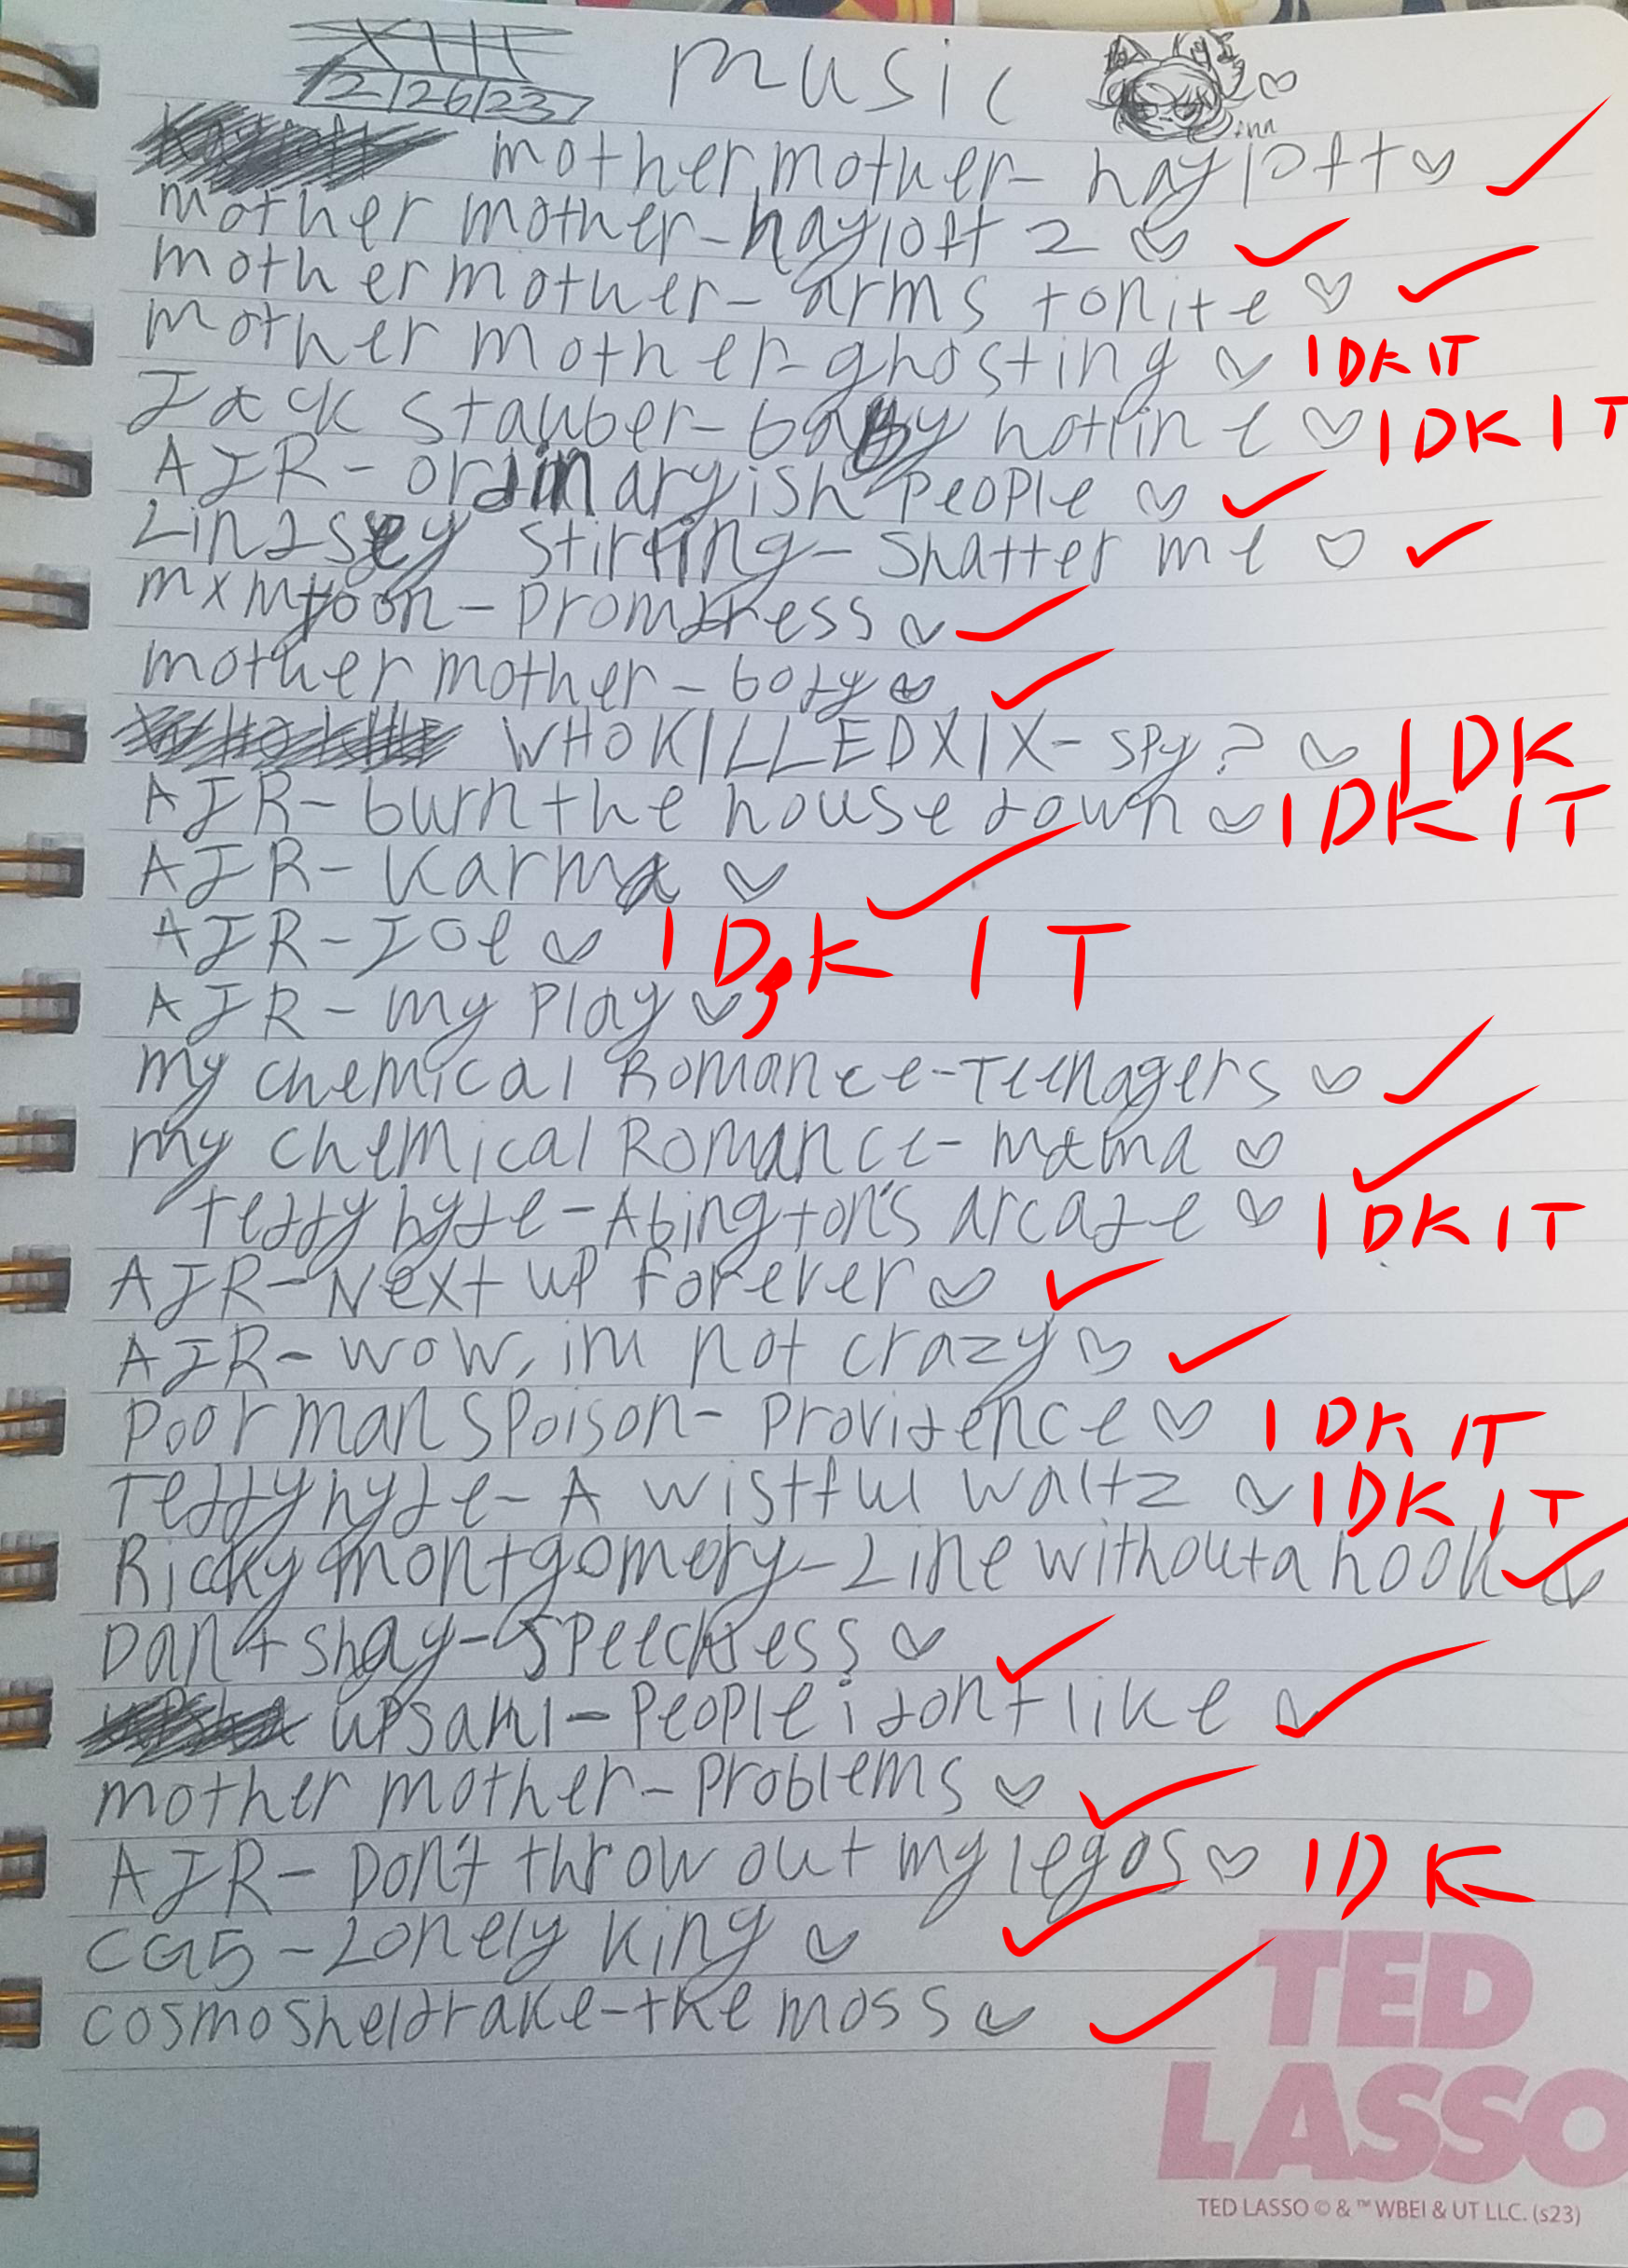 XIII
12/26/23
music
mother mother- hayloft ✓
mother mother-hayloft 2 ✓
mother mother- arms tonite ✓
mother mother-ghosting IDK IT
Jack stauber-baby hotline IDK IT
AJR- ordinaryish people ✓
Lindsey stirling- Shatter me ✓
mxmtoon-promdress ✓
mother mother- body ✓
WHOKILLEDXIX- spy? IDK
AJR- burn the house down IDK IT
AJR- Karma ✓
AJR-Joe IDK IT
AJR- my play
my chemical Romance-Teenagers ✓
my chemical Romance- mama ✓
Teddy hyde-Abington's arcade IDK IT
AJR-Next up forever ✓
AJR- wow, im not crazy ✓
poor mans poison- providence IDK IT
Teddy hyde- A wistful waltz IDK IT
Ricky montgomery-Line without a hook ✓
Dan + shay- speechless ✓
upsahl-people i dont like ✓
mother mother- problems ✓
AJR- Don't throw out my legos IDK
CG5 -Lonely king ✓
cosmo sheldrake-the moss ✓
TED
LASSO
TED LASSO © & ™ WBEI & UT LLC. (s23)